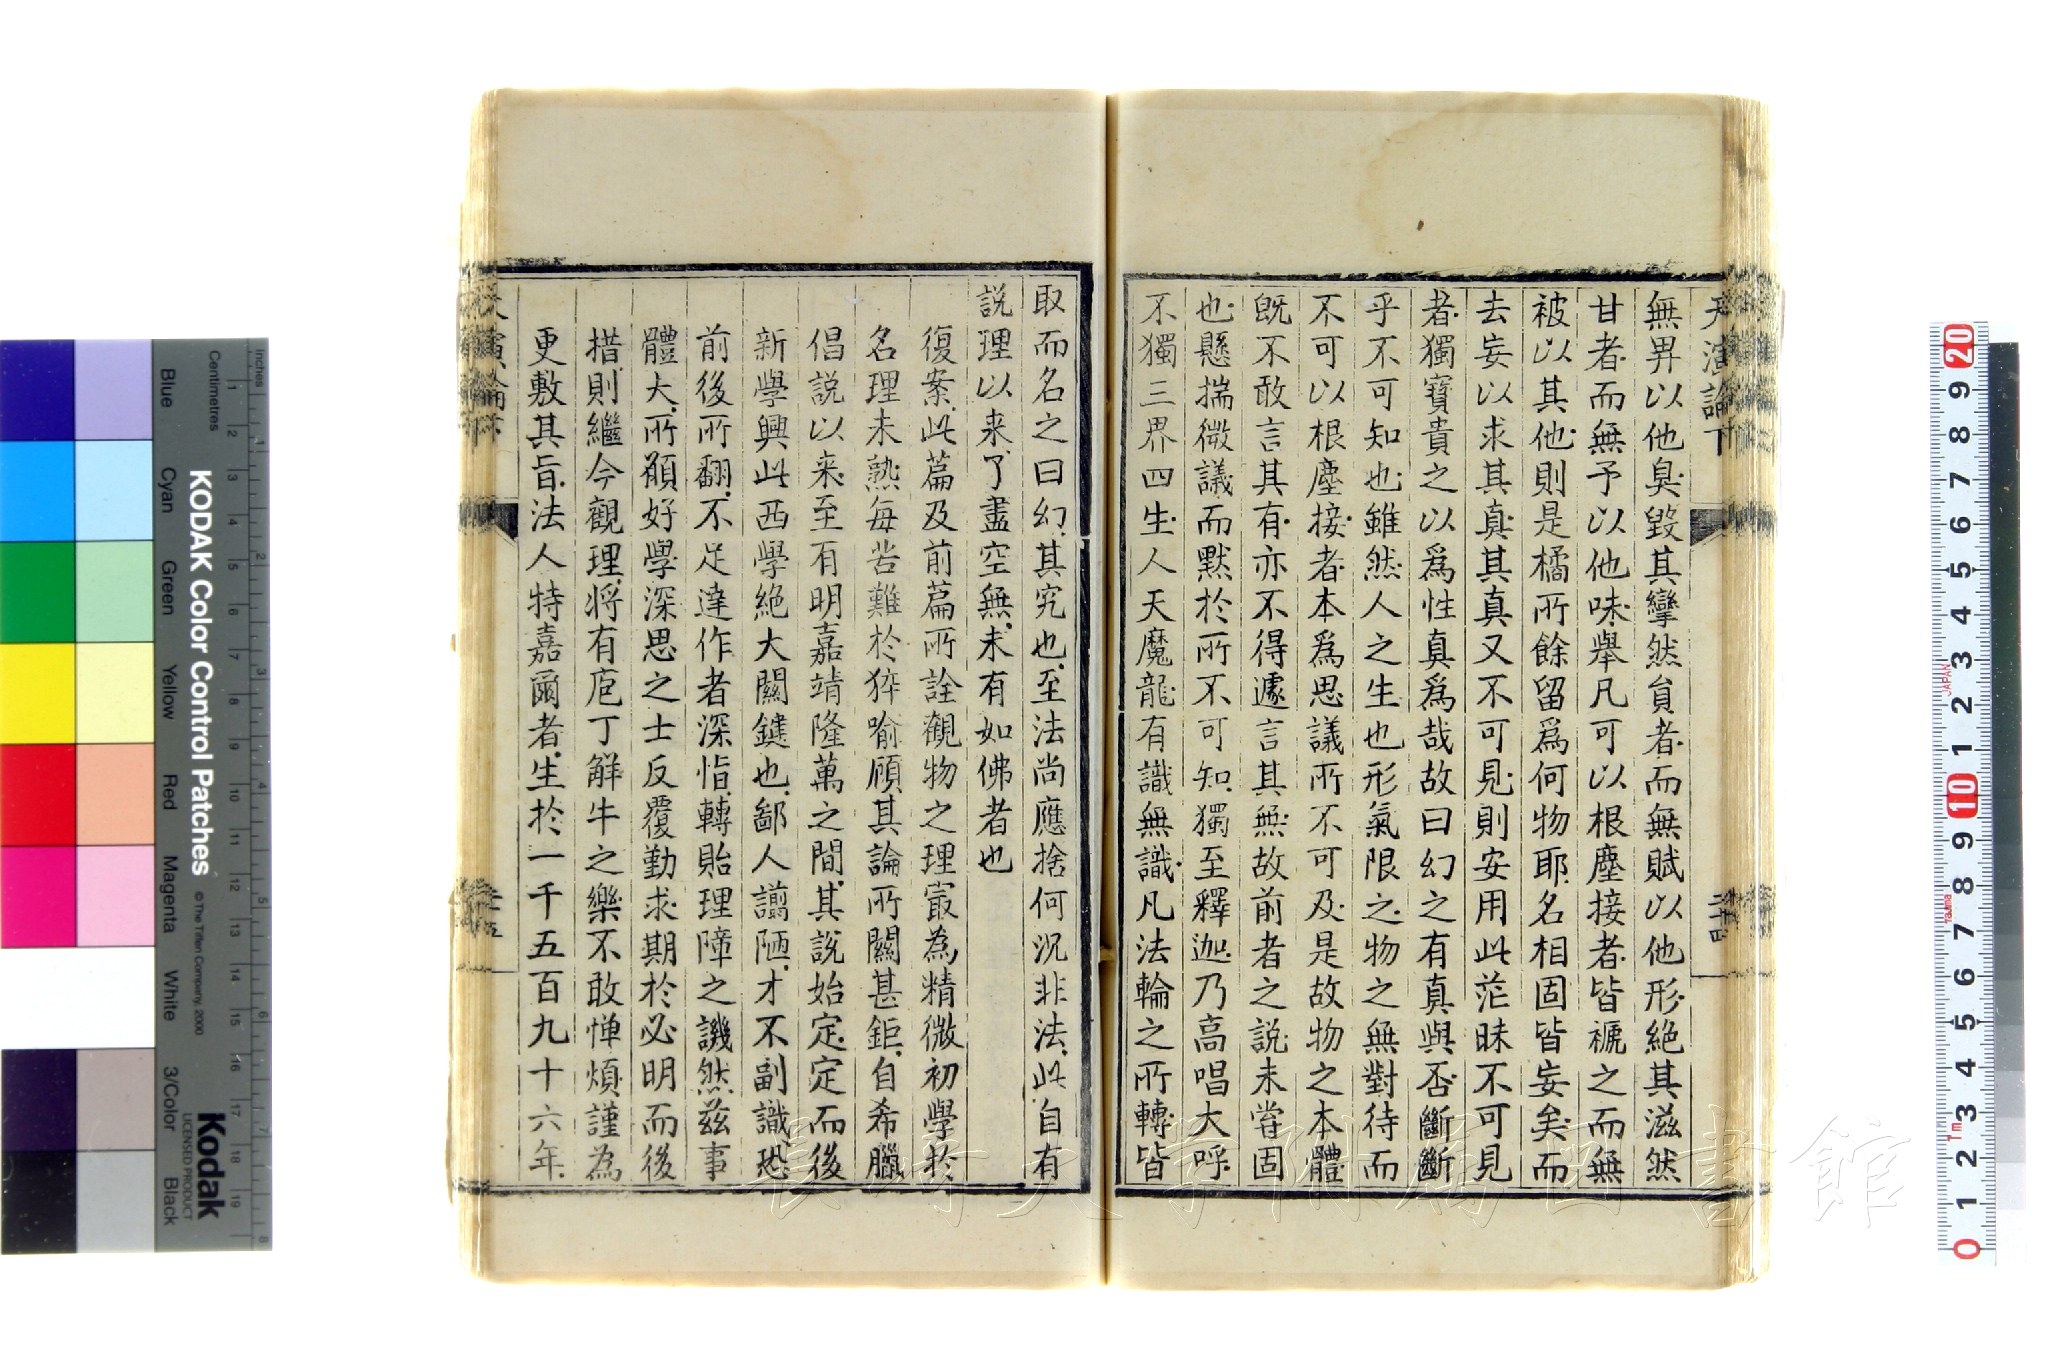 天演論下
二十四
無畀以他臭毀其攣然員者而無賦以他形絕其滋然
甘者而無予以他味舉凡可以根塵接者皆褫之而無
被以其他則是橘所餘留爲何物耶名相固皆妄矣而
去妄以求其真其真又不可見則安用此茫昧不可見
者獨寶貴之以爲性真爲哉故曰幻之有真與否斷斷
乎不可知也雖然人之生也形氣限之物之無對待而
不可以根塵接者本爲思議所不可及是故物之本體
既不敢言其有亦不得遽言其無故前者之說未嘗固
也懸揣微議而默於所不可知獨至釋迦乃高唱大呼
不獨三界四生人天魔龍有識無識凡法輪之所轉皆
取而名之曰幻其究也至法尚應捨何況非法此自有
說理以來了盡空無未有如佛者也
復案此篇及前篇所詮觀物之理最為精微初學於
名理未熟每苦難於猝喻顧其論所關甚鉅自希臘
倡說以來至有明嘉靖隆萬之間其說始定定而後
新學興此西學絕大關鍵也鄙人讕陋才不副識恐
前後所翻不足達作者深恉轉貽理障之譏然茲事
體大所願好學深思之士反覆勤求期於必明而後
措則繼今觀理將有庖丁解牛之樂不敢憚煩謹為
更敷其旨法人特嘉爾者生於一千五百九十六年
天演論下
KODAK Color Control Patches
© The Tiffen Company, 2000
Kodak
LICENSED PRODUCT
Inches
Centimetres
Blue
Cyan
Green
Yellow
Red
Magenta
White
3/Color
Black
1 2 3 4 5 6 7 8 9 10 11 12 13 14 15 16 17 18 19
1 2 3 4 5 6 7 8
0 1 2 3 4 5 6 7 8 9 10 1 2 3 4 5 6 7 8 9 20
JAPAN
Tajima
長崎大学附属図書館